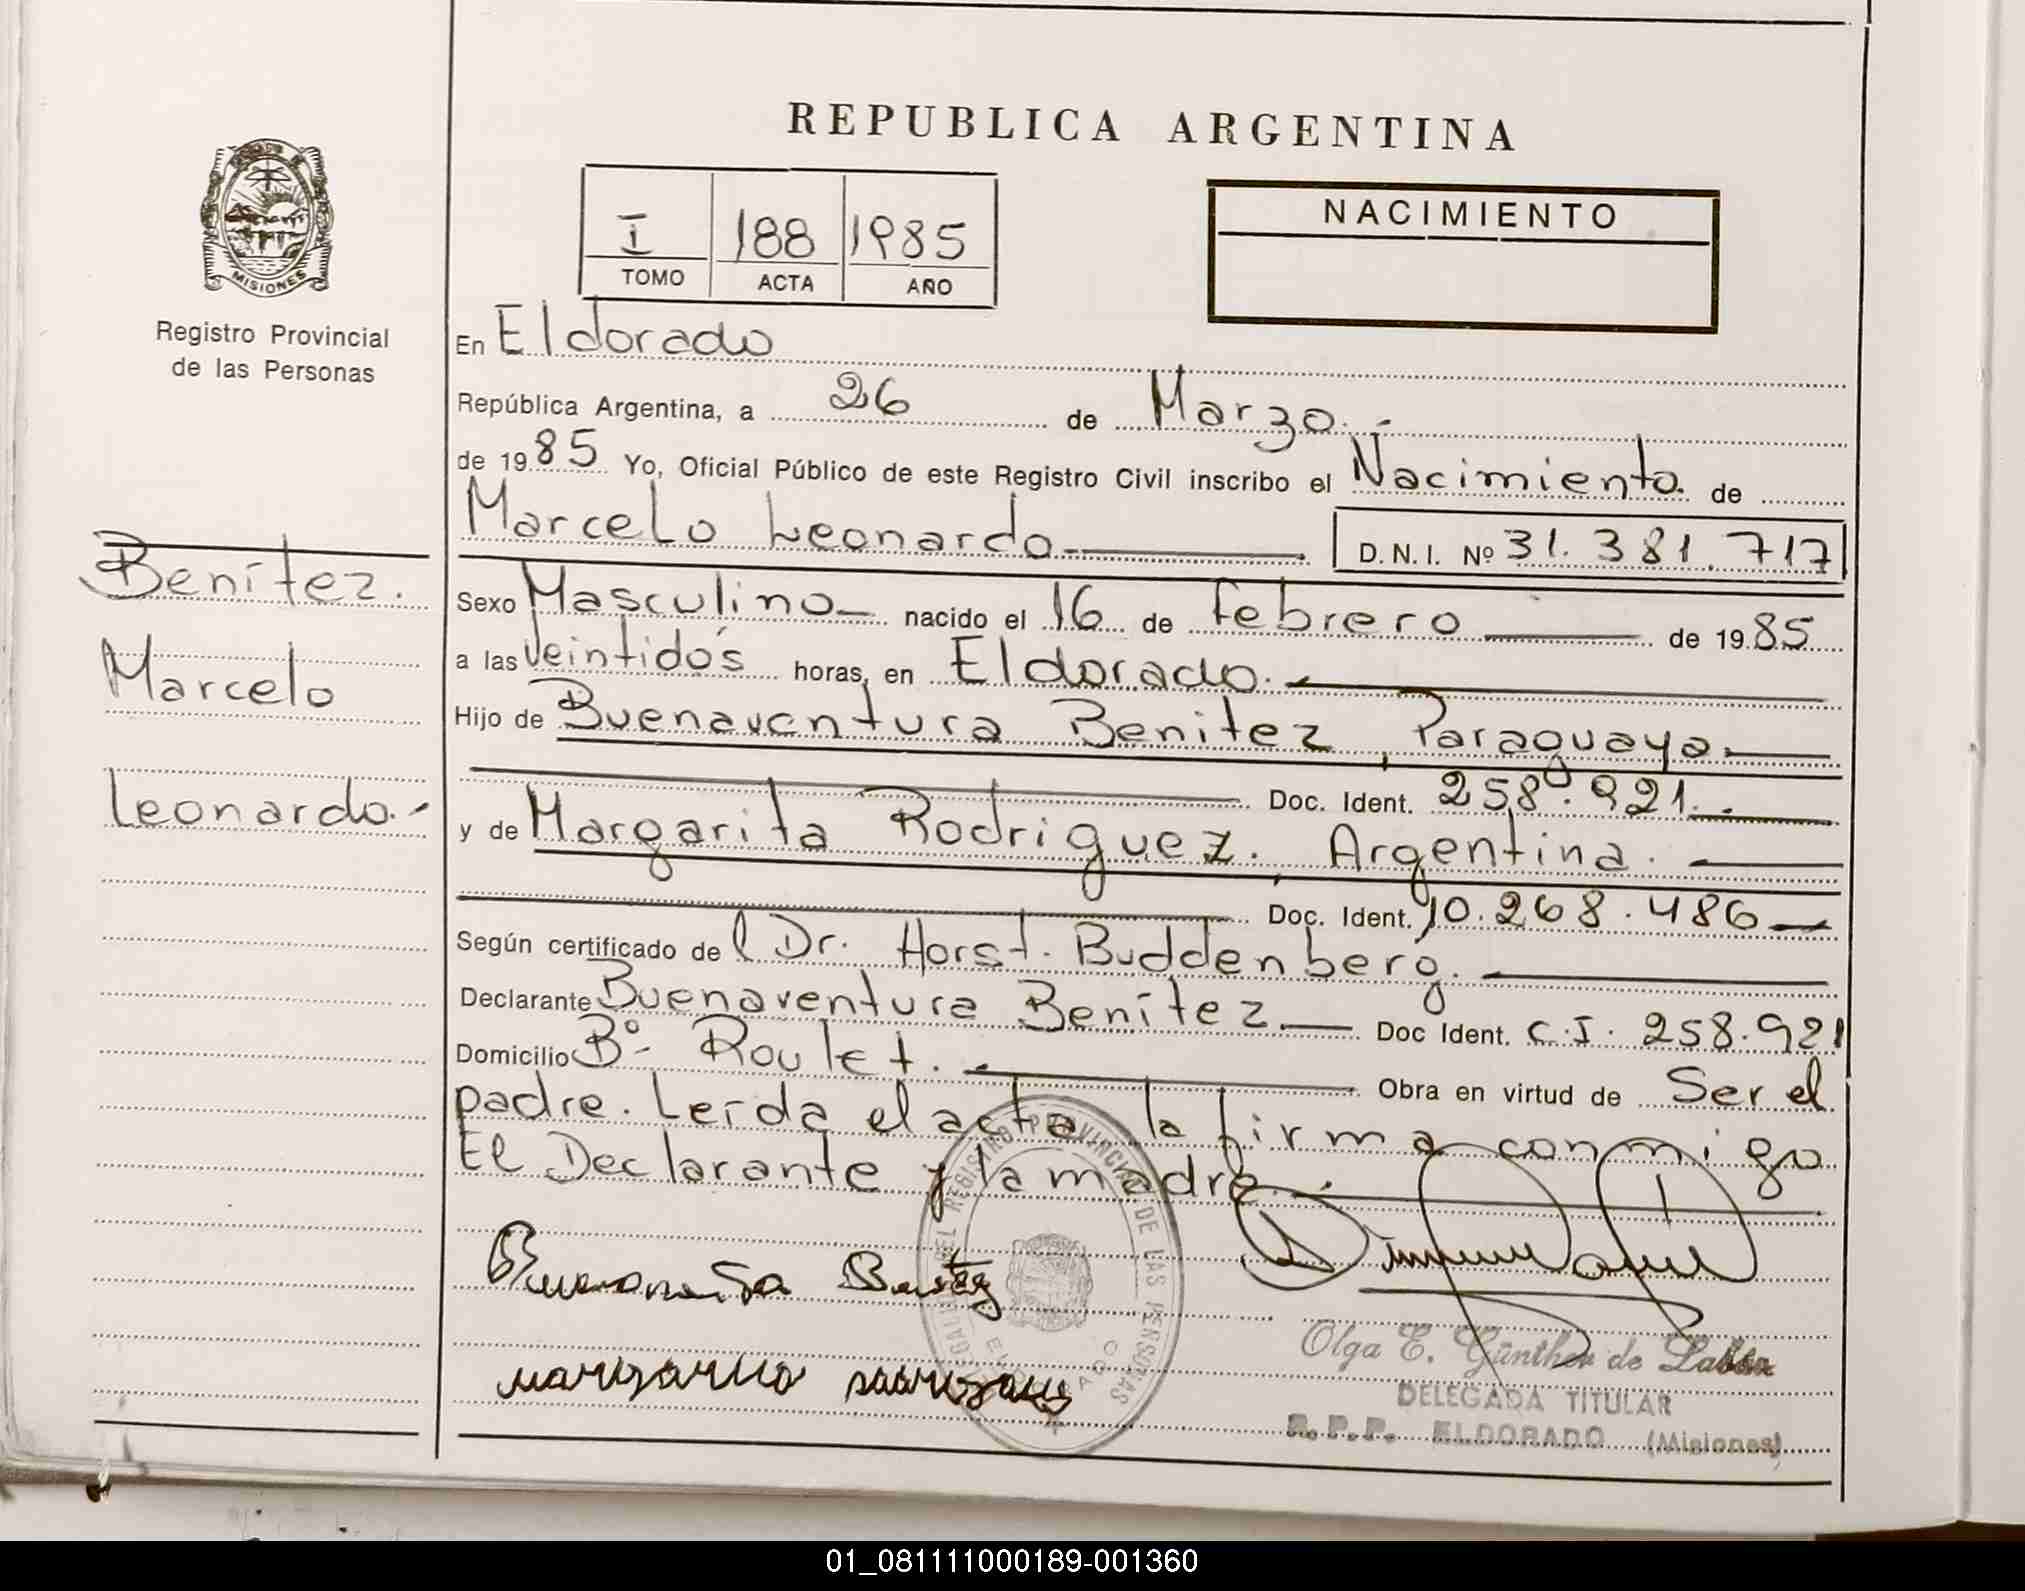 REPUBLICA ARGENTINA
MISIONES
Registro Provincial
de las Personas
I 188 1985
TOMO ACTA AÑO
NACIMIENTO
En Eldorado
República Argentina, a 26 de Marzo.-
de 1985 Yo, Oficial Público de este Registro Civil inscribo el Nacimiento de
Marcelo Leonardo D.N.I. Nº 31.381.717
Benítez.
Marcelo
Leonardo.-
Sexo Masculino nacido el 16 de Febrero de 1985
a las veintidós horas, en Eldorado.
Hijo de Buenaventura Benitez, Paraguaya
Doc. Ident. 258.921.
y de Margarita Rodriguez, Argentina.
Doc. Ident. 10.268.486
Según certificado del Dr. Horst. Buddenberg.
Declarante Buenaventura Benítez Doc Ident. C.I. 258.921
Domicilio Bº- Roulet. Obra en virtud de Ser el
padre. Leída el acta la firma conmigo
El Declarante y la madre.
DEL REGISTRO PROVINCIAL DE LAS PERSONAS
Olga E. Günther de
DELEGADA TITULAR
R.P.P. ELDORADO (Misiones)
01_081111000189-001360